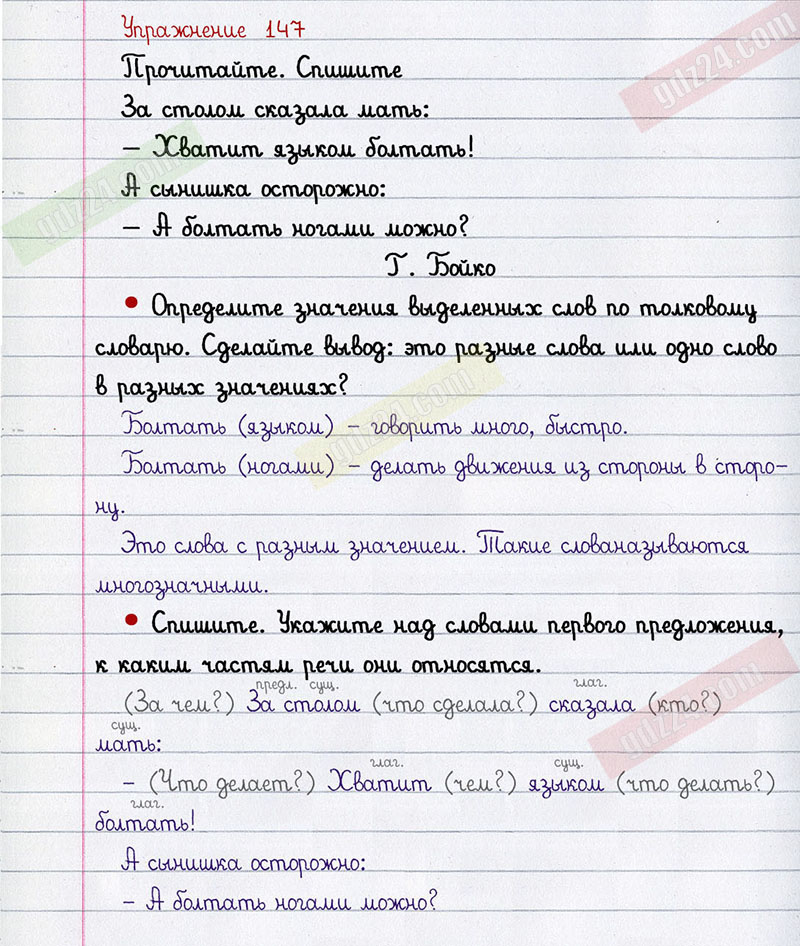 Упражнение 147
Прочитайте. Спишите
За столом сказала мать:
– Хватит языком болтать!
А сынишка осторожно:
– А болтать ногами можно?
Г. Бойко
• Определите значения выделенных слов по толковому
словарю. Сделайте вывод: это разные слова или одно слово
в разных значениях?
Болтать (языком) – говорить много, быстро.
Болтать (ногами) – делать движения из стороны в сторо-
ну.
Это слова с разным значением. Такие слованазываются
многозначными.
• Спишите. Укажите над словами первого предложения,
к каким частям речи они относятся.
предл. сущ. глаг.
(За чем?) За столом (что сделала?) сказала (кто?)
сущ.
мать:
глаг. сущ.
– (Что делает?) Хватит (чем?) языком (что делать?)
глаг.
болтать!
А сынишка осторожно:
– А болтать ногами можно?
gdz24.com
gdz24.com
gdz24.com
gdz24.com